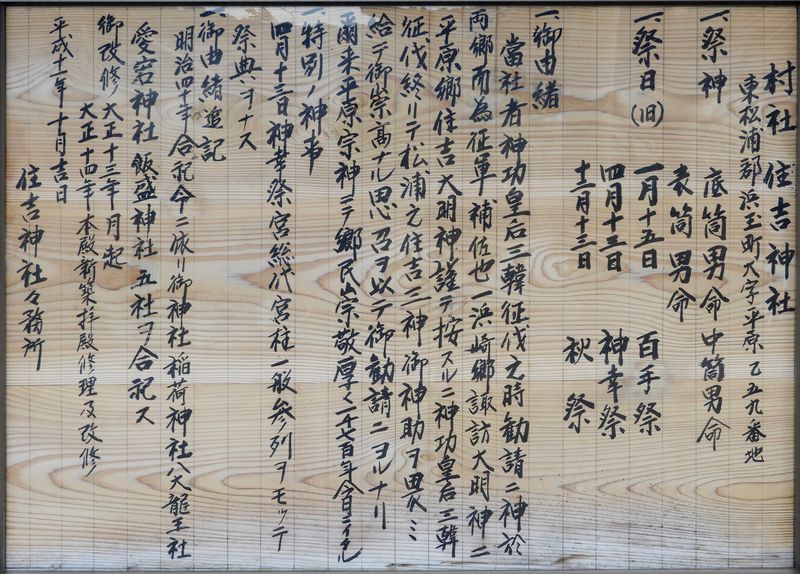 村社 住吉神社
東松浦郡浜玉町大字平原乙五九番地
一、祭神 底筒男命 中筒男命
表筒男命
一、祭日(旧) 一月十五日 百手祭
四月十三日 神幸祭
十二月十三日 秋祭
一、御由緒
当社者神功皇后三韓征伐之時勧請二神於
両郷而為征軍補佐也一浜崎郷諏訪大明神二
平原郷住吉大明神謹テ按スルニ神功皇后三韓
征伐終リテ松浦之住吉三神御神助ヲ畏ミ
給テ御崇高ナル思召ヲ以テ御勧請ニヨルナリ
爾来平原宗神ニテ郷民崇敬厚く一千七百年今日ニイタル
一、特別ノ神事
四月十三日神幸祭宮総代宮柱一般参列ヲモッテ
祭典ヲナス
一、御由緒追記
明治四十年合祀令ニ依リ御神社稲荷神社八大龍王社
愛宕神社飯盛神社五社ヲ合祀ス
御改修大正十三年 月起
大正十四年本殿新築拝殿修理及改修
平成十一年十月吉日
住吉神社々務所